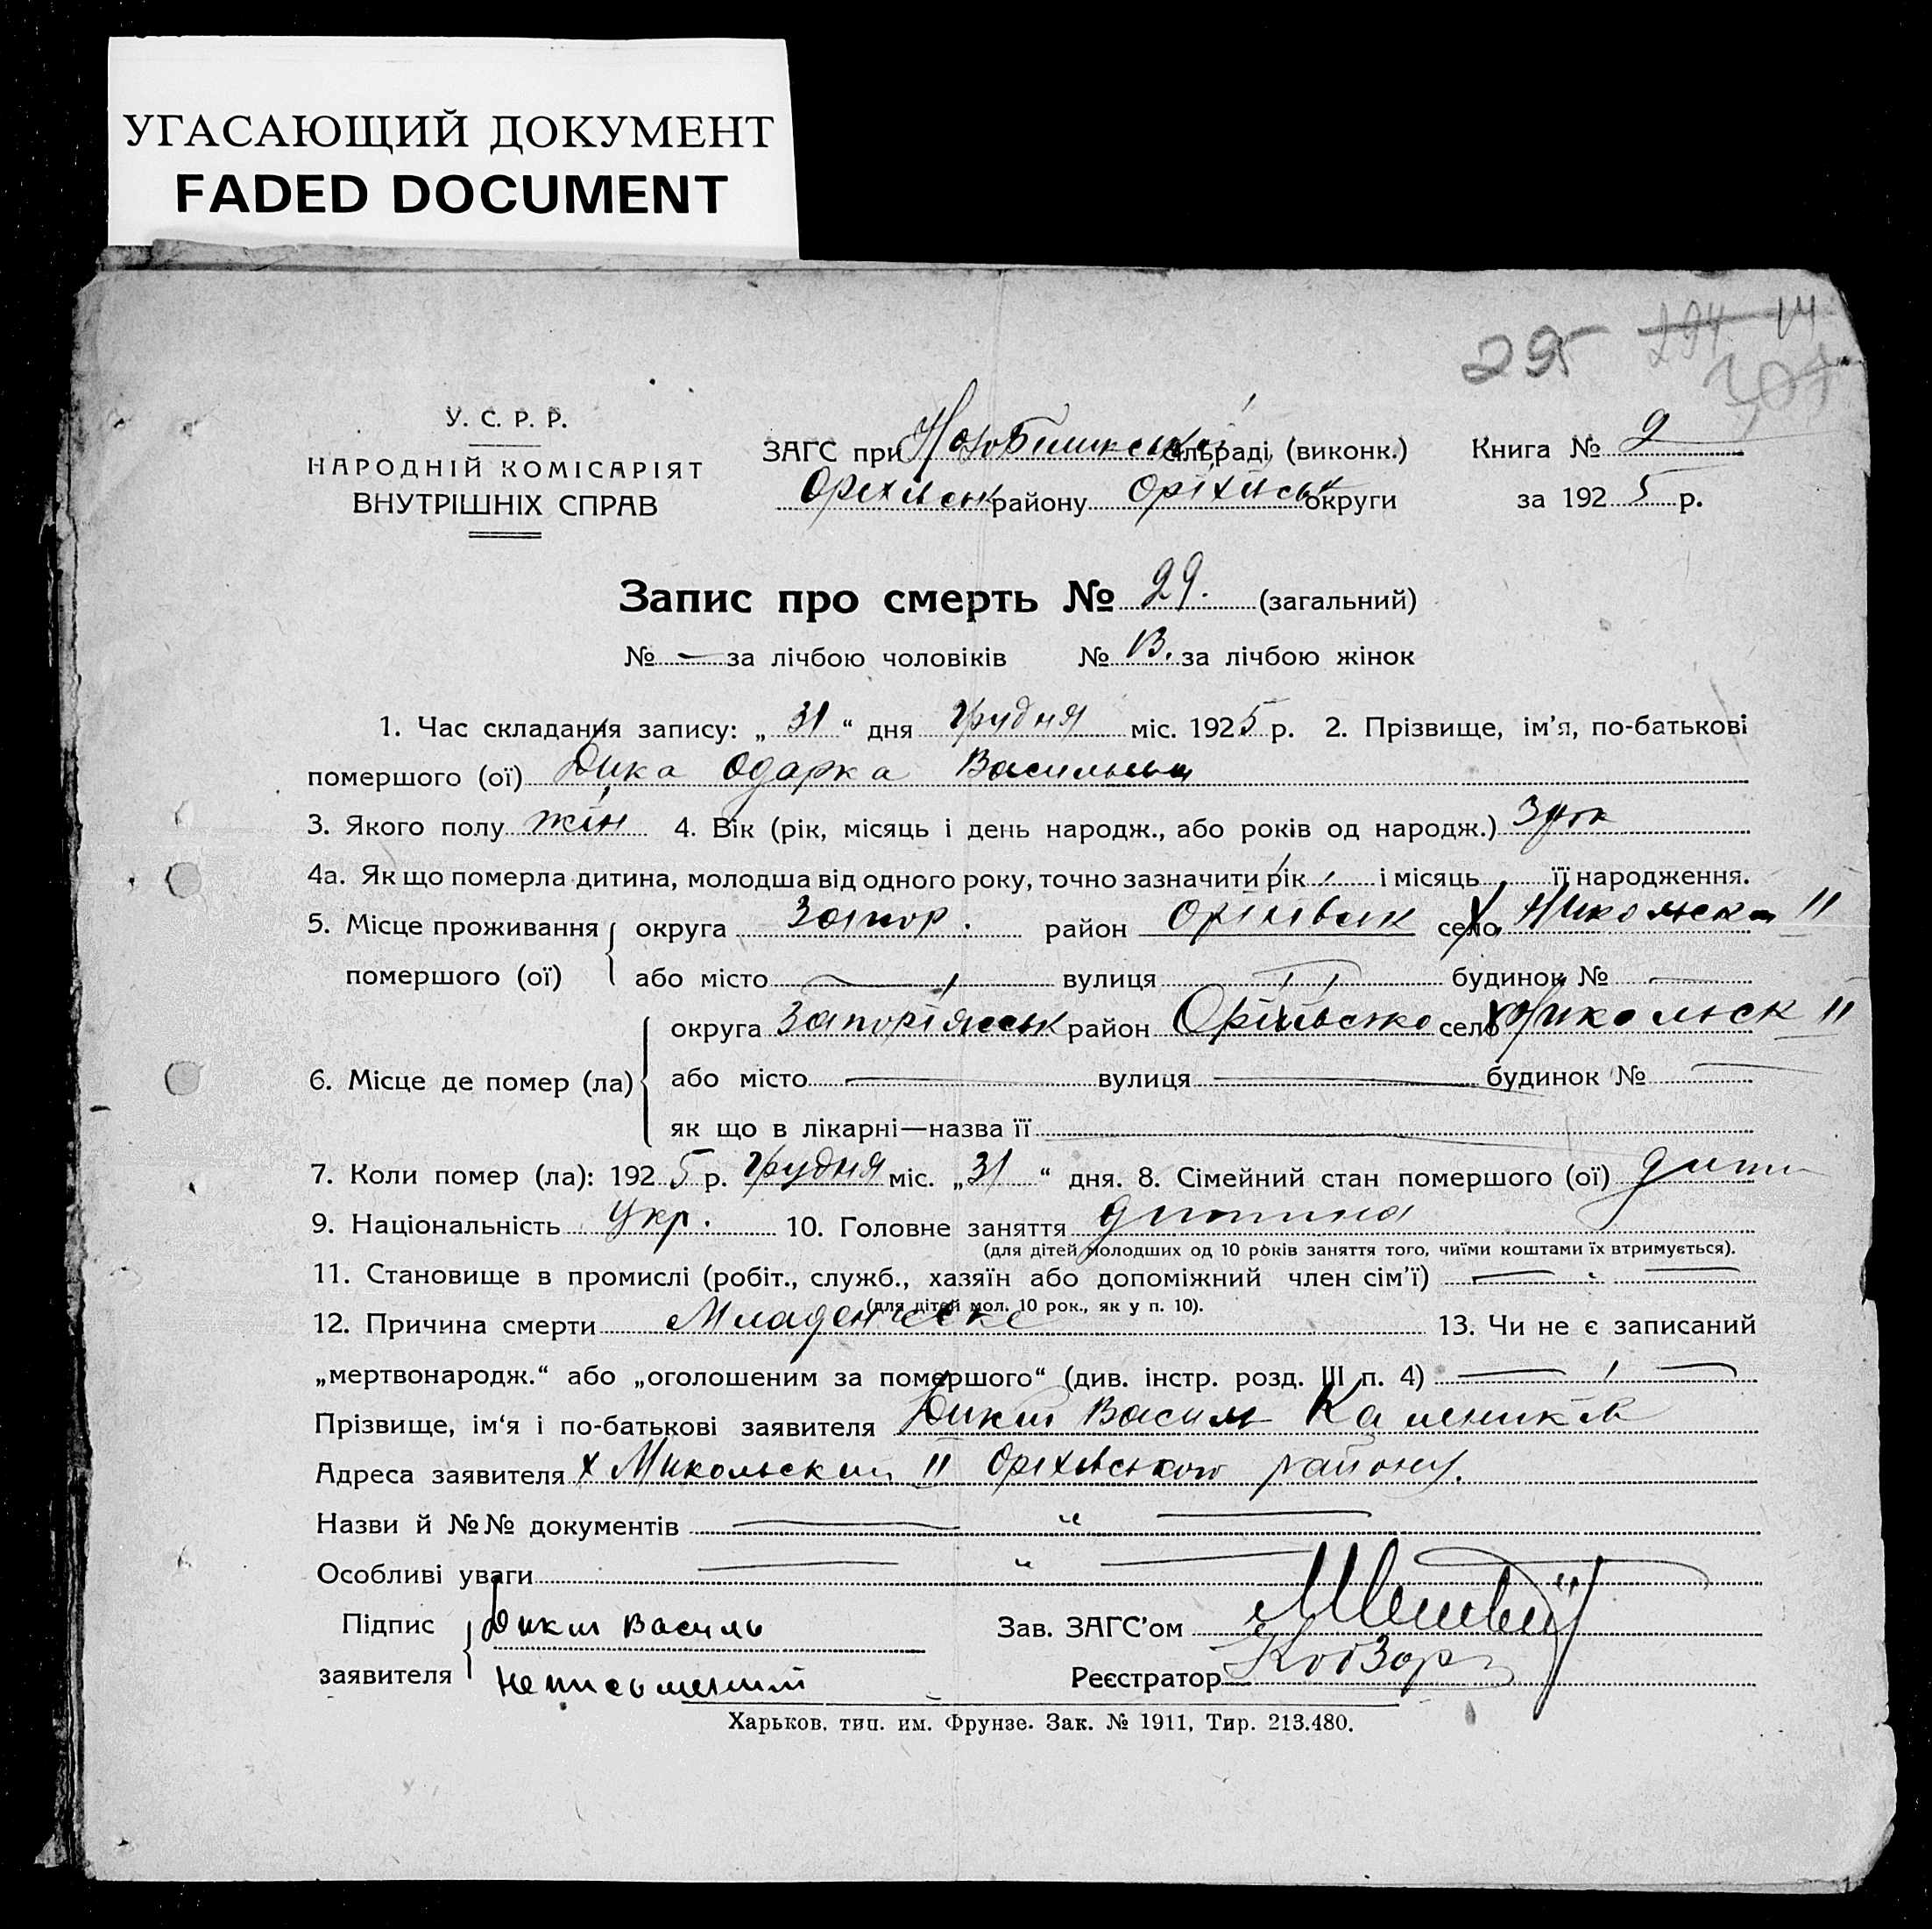 УГАСАЮЩИЙ ДОКУМЕНТ
FADED DOCUMENT
295 294 14
У. С. Р. Р.
НАРОДНІЙ КОМІСАРІЯТ
ВНУТРІШНІХ СПРАВ
ЗАГС при сільраді (виконк.)
Оріхівськ району Оріхівськ округи
Книга № 2
за 1925 р.
Запис про смерть № 29. (загальний)
№ — за лічбою чоловіків № 13. за лічбою жінок
1. Час складання запису: „ 31 “ дня грудня міс. 1925 р. 2. Прізвище, ім’я, по-батькові
помершого (ої) Дика Одарка Васильем
3. Якого полу жін 4. Вік (рік, місяць і день народж., або років од народж.)
4а. Як що померла дитина, молодша від одного року, точно зазначити рік і місяць її народження.
5. Місце проживання помершого (ої) округа Запор. район Оріхівськ село х. Никольск II
або місто — вулиця — будинок № —
6. Місце де помер (ла) округа Запоріжськ район Оріхівсько село х Никольск II
або місто — вулиця — будинок № —
як що в лікарні—назва її —
7. Коли помер (ла): 1925 р. грудня міс. „31“ дня. 8. Сімейний стан помершого (ої) дити
9. Національність Укр. 10. Головне заняття дитина
(для дітей молодших од 10 років заняття того, чиїми коштами їх втримується).
11. Становище в промислі (робіт., служб., хазяїн або допоміжний член сім’ї) —
(для дітей мол. 10 рок., як у п. 10).
12. Причина смерти Младенческе 13. Чи не є записаний
„мертвонародж.“ або „оголошеним за помершого“ (див. інстр. розд. III п. 4) —
Прізвище, ім‘я і по-батькові заявителя Дикий Василь
Адреса заявителя х Микольский II Оріхівського району.
Назви й №№ документів — " —
Особливі уваги — " —
Підпис заявителя Дикий Василь
неписьменний
Зав. ЗАГС’ом
Реєстратор Кобзар
Харьков, тип. им. Фрунзе. Зак. № 1911, Тир. 213.480.